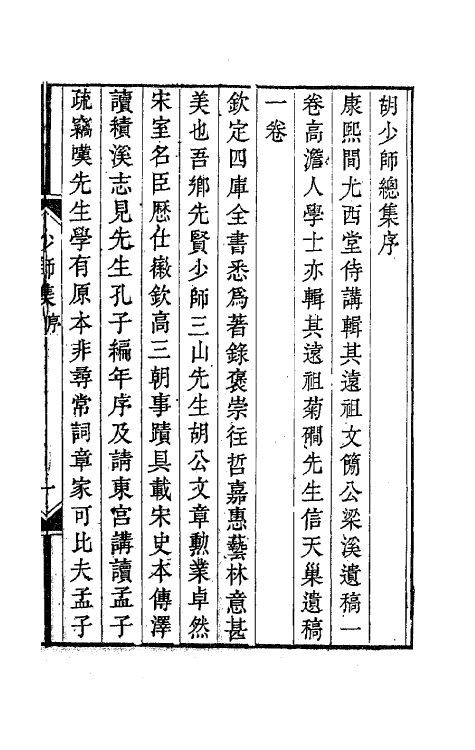 胡少師總集序
康熙間尤西堂侍講輯其遠祖文簡公梁溪遺稿一
卷高澹人學士亦輯其遠祖菊磵先生信天巢遺稿
一卷
欽定四庫全書悉爲著錄褒崇往哲嘉惠藝林意甚
美也吾鄉先賢少師三山先生胡公文章勲業卓然
宋室名臣歷仕徽欽高三朝事蹟具載宋史本傳澤
讀積溪志見先生孔子編年序及請東宮講讀孟子
疏竊嘆先生學有原本非尋常詞章家可比夫孟子
少師集 序 一